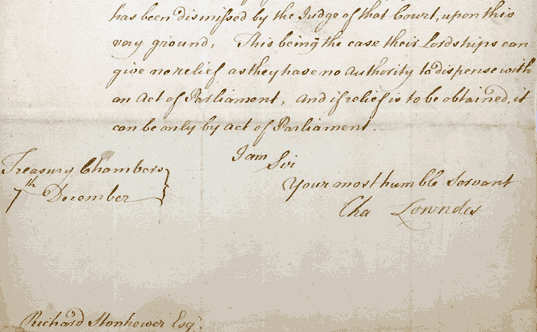 has been dismissed by the Judge of that Court, upon this
very ground, This being the case their Lordships can
give no relief as they have no Authority to dispense with
an Act of Parliament, and if relief is to be obtained, it
can be only by Act of Parliament.
I am Sir
Your most humble Servant
Cha Lowndes
Treasury Chambers
7th December
Richard Stonhewer Esqr.